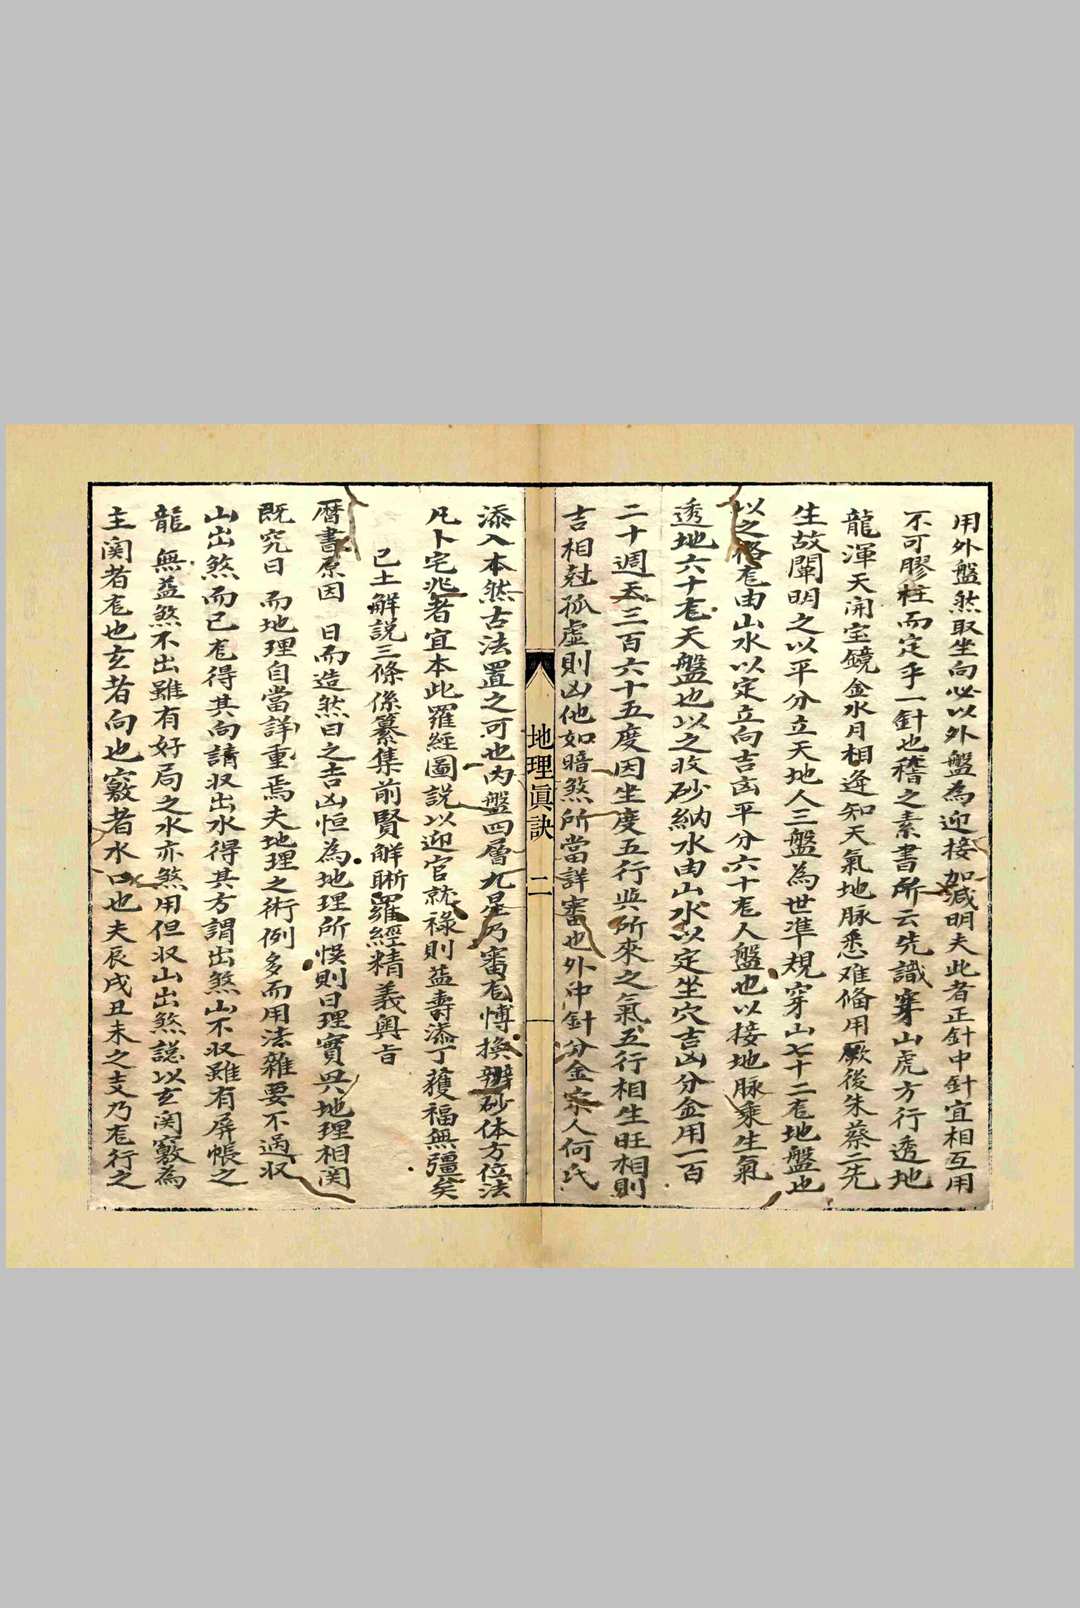 用外盤然取坐向必以外盤為迎接加減明夫此者正針中針宜相互用
不可膠柱而定乎一針也稽之素書所云先識穿山虎方行透地
龍渾天開宝鏡金水月相逢知天氣地脉悉难俻用厥後朱蔡二先
生故闡明之以平分立天地人三盤為世準規穿山七十二竜地盤也
以之格竜由山水以定立向吉凶平分六十竜人盤也以接地脉乘生氣
透地六十竜天盤也以之收砂納水由山水以定坐穴吉凶分金用一百
二十週天三百六十五度因坐度五行與所來之氣五行相生旺相則
吉相尅孤虛則凶他如暗煞所當詳審也外中針分金宗人何氏
地理眞訣 二
添入本然古法置之可也内盤四層九星乃審竜愽換辦砂体方位法
凡卜宅兆者宜本此羅經圖説以迎官就祿則益壽添丁獲福無彊矣
已上解説三條係纂集前賢觧晰羅經精義奥旨
曆書原因 日而造然曰之吉凶恒為地理所悞則日理實與地理相関
既究日 而地理自當詳重焉夫地理之術例多而用法雜要不過収
山出煞而已竜得其向請収出水得其方謂出煞山不収雖有屏帳之
龍 無益煞不出雖有好局之水亦煞用但収山出煞認以玄関竅為
主関者竜也玄者向也竅者水口也夫辰戌丑未之支乃竜行之